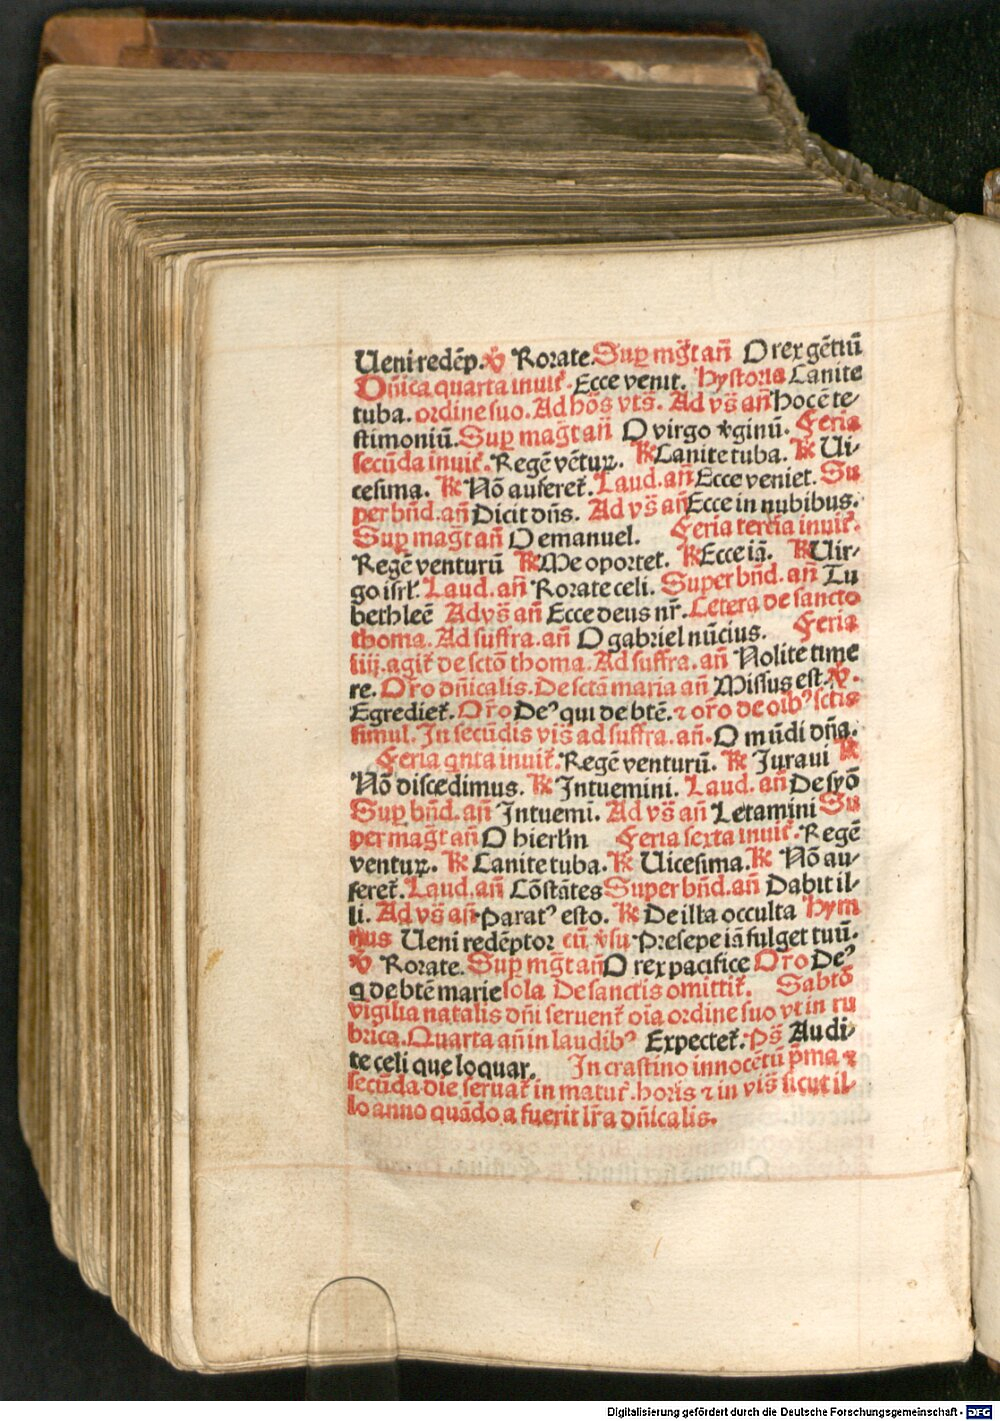 Ueni redēp. ℣ Rorate. Suꝑ mg̃t añ O rex gētiū
Dñica quarta inuit̃. Ecce venit. hystoria Canite
tuba. ordine suo. Ad hōs vts̃. Ad vs̃ añ hoc ē te-
stimoniū. Suꝑ mag̃t añ O virgo v̓ginū. Feria
secūda inuit̃. Regē vētuꝝ. ℟ Canite tuba. ℟ Ui-
cesima. ℟ Nō auferet̃. Laud. añ Ecce veniet. Su
per bñd. añ Dicit dñs. Ad vs̃ añ Ecce in nubibus.
Suꝑ mag̃t añ O emanuel. Feria tercia inuit̃.
Regē venturū ℟ Me oportet. ℟ Ecce iā. ℟ Uir-
go isrl̃. Laud. añ Rorate celi. Super bñd. añ Tu
bethleē Ad vs̃ añ Ecce deus nr̃. Cetera de sancto
thoma. Ad suffra. añ O gabriel nūcius. Feria
iiij. agit̃ de sctō thoma. Ad suffra. añ Nolite time
re. Or̃o dñicalis. De sctā maria añ Missus est. ℣.
Egrediet̃. Or̃o Deꝰ qui de btē. ⁊ or̃o de oibꝰ sctis
simul. In secūdis vis̃ ad suffra. añ. O mūdi dña.
Feria qnta inuit̃. Regē venturū. ℟ Juraui ℟
Nō discedimus. ℟ Intuemini. Laud. añ De syō
Suꝑ bñd. añ Intuemi. Ad vs̃ añ Letamini Su
per mag̃t añ O hierlm̃ Feria sexta inuit̃. Regē
ventuꝝ. ℟ Canite tuba. ℟ Uicesima. ℟ Nō au-
feret̃. Laud. añ Cōstātes Super bñd. añ Dabit il-
li. Ad vs̃ añ Paratꝰ esto. ℟ De illa occulta hym
nus Ueni redēptor cū v̓su Presepe iā fulget tuū.
℣ Rorate. Suꝑ mg̃t añ O rex pacifice Or̃o Deꝰ
q de btē marie sola De sanctis omittit̃. Sabtō
vigilia natalis dñi seruent̃ oīa ordine suo vt in ru
brica. Quarta añ in laudibꝰ Expectet̃. Ps̃ Audi-
te celi que loquar. In crastino innocētū p̃ma ⁊
secūda die seruat̃ in matut̃. horis ⁊ in vis̃ sicut il-
lo anno quādo a fuerit lr̃a dñicalis.
Digitalisierung gefördert durch die Deutsche Forschungsgemeinschaft - DFG